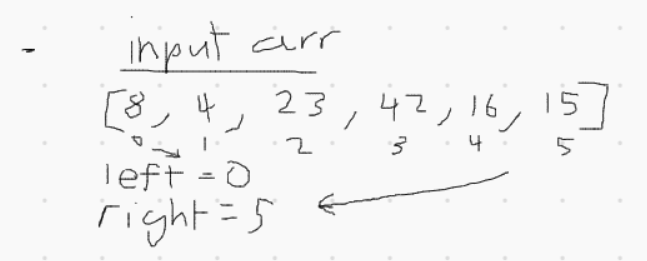 - input arr
[8, 4, 23, 42, 16, 15]
0 1 2 3 4 5
left = 0
right = 5